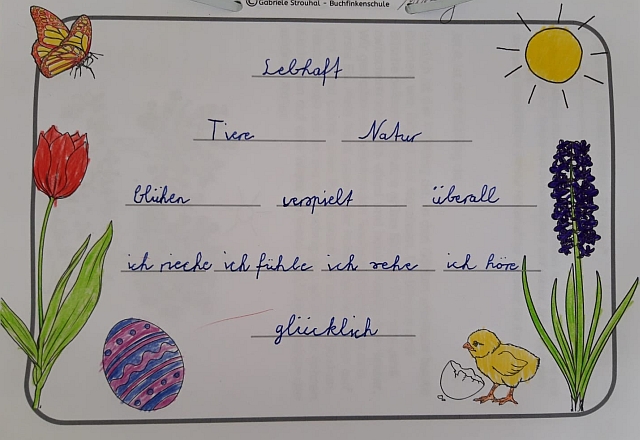 ©Gabriele Strouhal - Buchfinkenschule
Lebhaft
Tiere Natur
blühen verspielt überall
ich rieche ich fühle ich sehe ich höre
glücklich